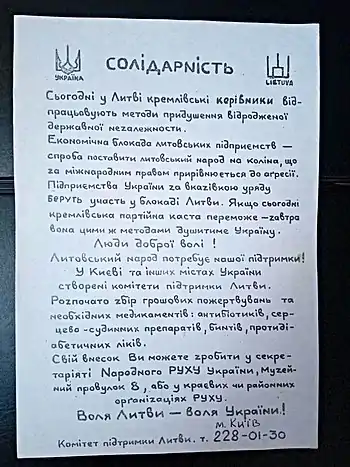 СОЛІДАРНІСТЬ
УКРАЇНА
LIETUVA
Сьогодні у Литві кремлівські керівники від-
працьовують методи придушення відродженої
державної незалежности.
Економічна блокада литовських підприємств —
спроба поставити литовський народ на коліна, що
за міжнародним правом прирівнюється до аґресії.
Підприємства України за вказівкою уряду
беруть участь у блокаді Литви. Якщо сьогодні
кремлівська партійна каста переможе — завтра
вона цими ж методами душитиме Україну.
Люди доброї волі !
Литовський народ потребує нашої підтримки!
У Києві та инших містах України
створені комітети підтримки Литви.
Розпочато збір грошових пожертвувань та
необхідних медикаментів: антибіотиків, сер-
цево-судинних препаратів, бинтів, протиді-
абетичних ліків.
Свій внесок Ви можете зробити у секре-
таріяті Народного РУХУ України, Музей-
ний провулок 8, або у краєвих чи районних
орґанізаціях РУХУ.
Воля Литви — воля України!
м. Київ
Комітет підтримки Литви. т. 228-01-30